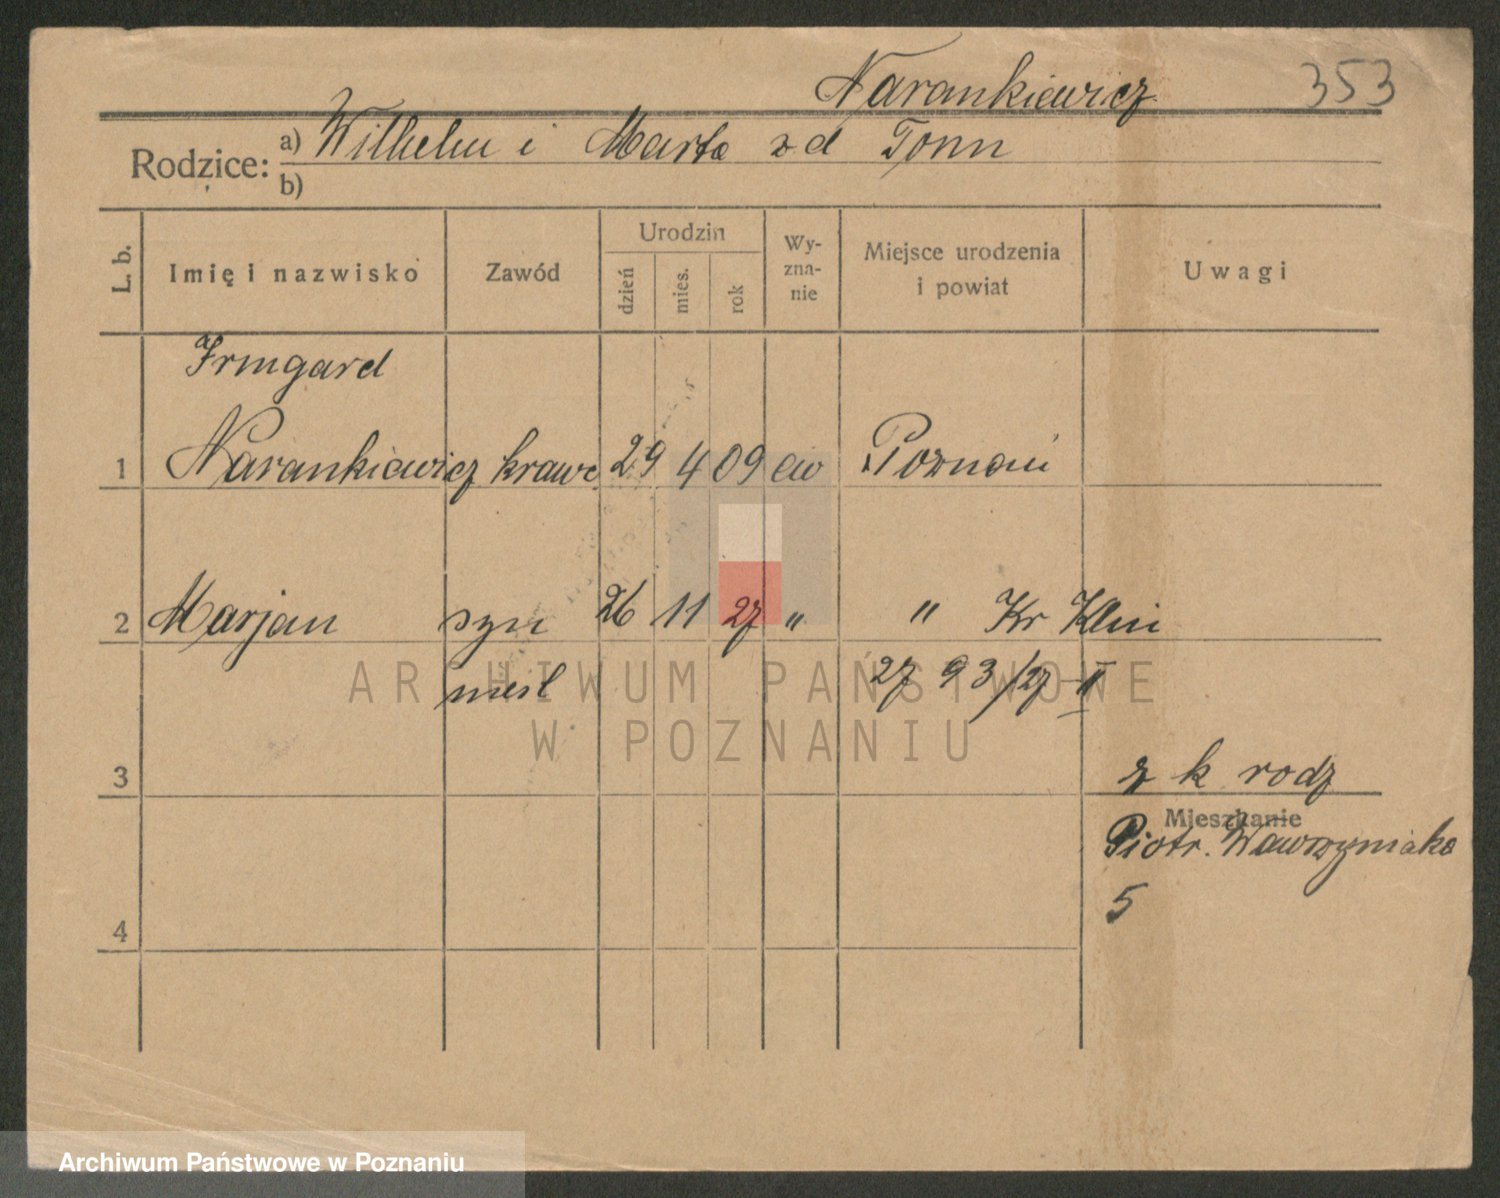 Narankiewicz 353
Rodzice: a) Wilhelm i Marta z d Tonn
b)
L. b. Imię i nazwisko Zawód Urodzin dzień mies. rok Wyznanie Miejsce urodzenia i powiat Uwagi
Irmgard
1 Narankiewicz krawc 29 4 09 ew Poznań
2 Marjan syn 26 11 27 " " Kr Klin
nieśl 27 93/27 II
ARCHIWUM PAŃSTWOWE
W POZNANIU
3 z k rodz
Mieszkanie
Piotr. Wawrzyniaka
4 5
Archiwum Państwowe w Poznaniu